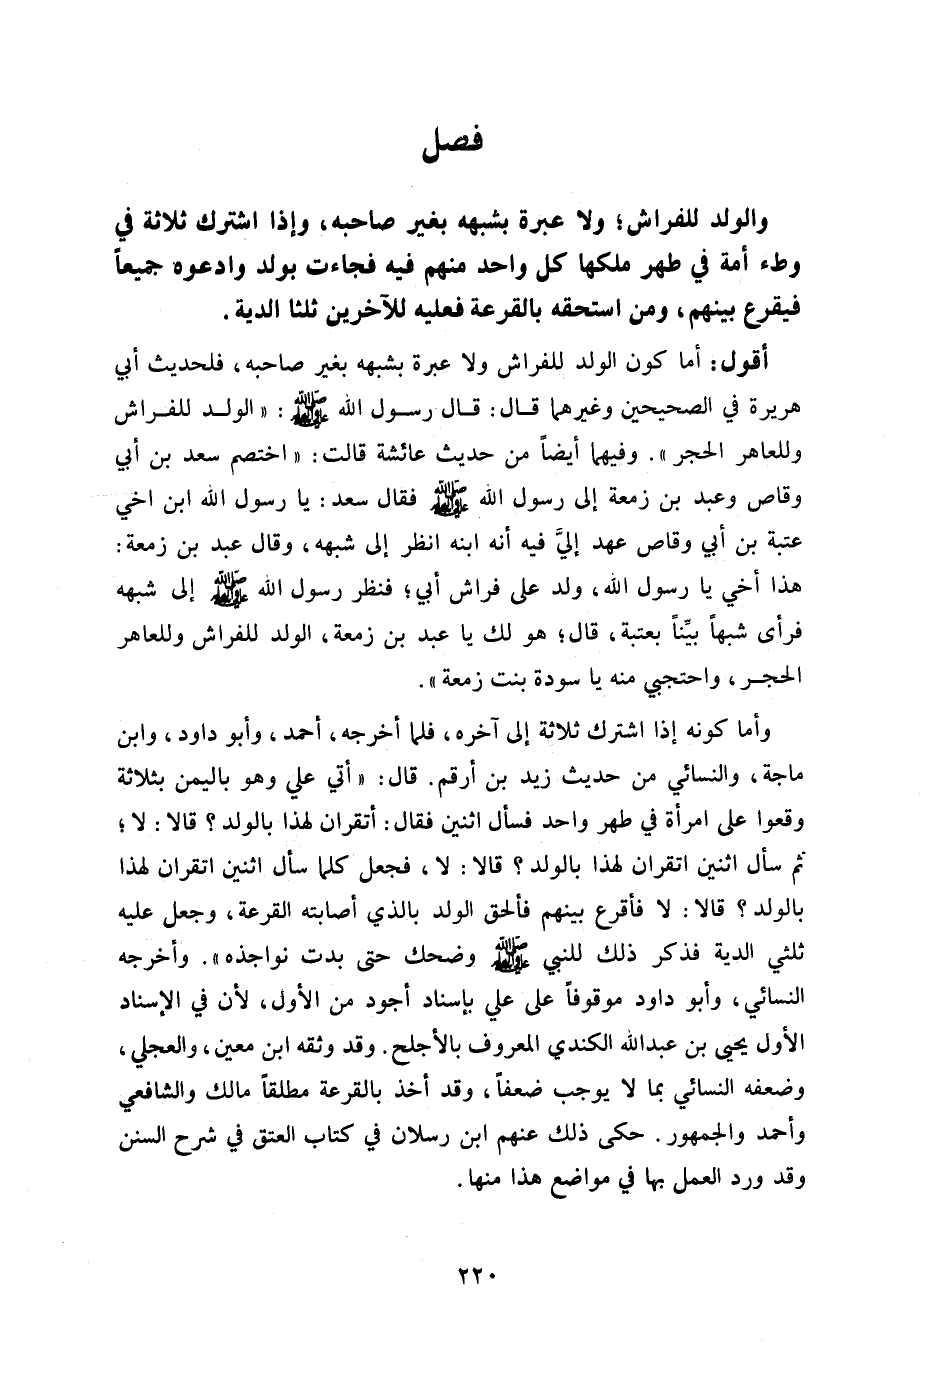 فصل
والولد للفراش؛ ولا عبرة بشبهه بغير صاحبه، وإذا اشترك ثلاثة في
وطء أمة في طهر ملكها كل واحد منهم فيه فجاءت بولد وادعوه جميعاً
فيقرع بينهم، ومن استحقه بالقرعة فعليه للآخرين ثلثا الدية.
أقول: أما كون الولد للفراش ولا عبرة بشبهه بغير صاحبه، فلحديث أبي
هريرة في الصحيحين وغيرهما قال: قال رسول الله ﷺ: «الولد للفراش
وللعاهر الحجر». وفيهما أيضاً من حديث عائشة قالت: «اختصم سعد بن أبي
وقاص وعبد بن زمعة إلى رسول الله ﷺ فقال سعد: يا رسول الله ابن اخي
عتبة بن أبي وقاص عهد إليَّ فيه أنه ابنه انظر إلى شبهه، وقال عبد بن زمعة:
هذا أخي يا رسول الله، ولد على فراش أبي؛ فنظر رسول الله ﷺ إلى شبهه
فرأى شبهاً بيِّناً بعتبة، قال؛ هو لك يا عبد بن زمعة، الولد للفراش وللعاهر
الحجر، واحتجبي منه يا سودة بنت زمعة».
وأما كونه إذا اشترك ثلاثة إلى آخره، فلما أخرجه، أحمد، وأبو داود، وابن
ماجة، والنسائي من حديث زيد بن أرقم. قال: «أتي علي وهو باليمن بثلاثة
وقعوا على امرأة في طهر واحد فسأل اثنين فقال: أتقران لهذا بالولد؟ قالا: لا؛
ثم سأل اثنين اتقران لهذا بالولد؟ قالا: لا، فجعل كلما سأل اثنين اتقران لهذا
بالولد؟ قالا: لا فأقرع بينهم فألحق الولد بالذي أصابته القرعة، وجعل عليه
ثلثي الدية فذكر ذلك للنبي ﷺ وضحك حتى بدت نواجذه». وأخرجه
النسائي، وأبو داود موقوفاً على علي بإسناد أجود من الأول، لأن في الإسناد
الأول يحيى بن عبدالله الكندي المعروف بالأجلح. وقد وثقه ابن معين، والعجلي،
وضعفه النسائي بما لا يوجب ضعفاً، وقد أخذ بالقرعة مطلقاً مالك والشافعي
وأحمد والجمهور. حكى ذلك عنهم ابن رسلان في كتاب العتق في شرح السنن
وقد ورد العمل بها في مواضع هذا منها.
٢٢٠